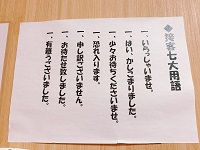 ◆接客七大用語
一、いらっしゃいませ。
一、はい、かしこまりました。
一、少々お待ちくださいませ。
一、恐れ入ります。
一、申し訳ございません。
一、お待たせ致しました。
一、有難うございました。